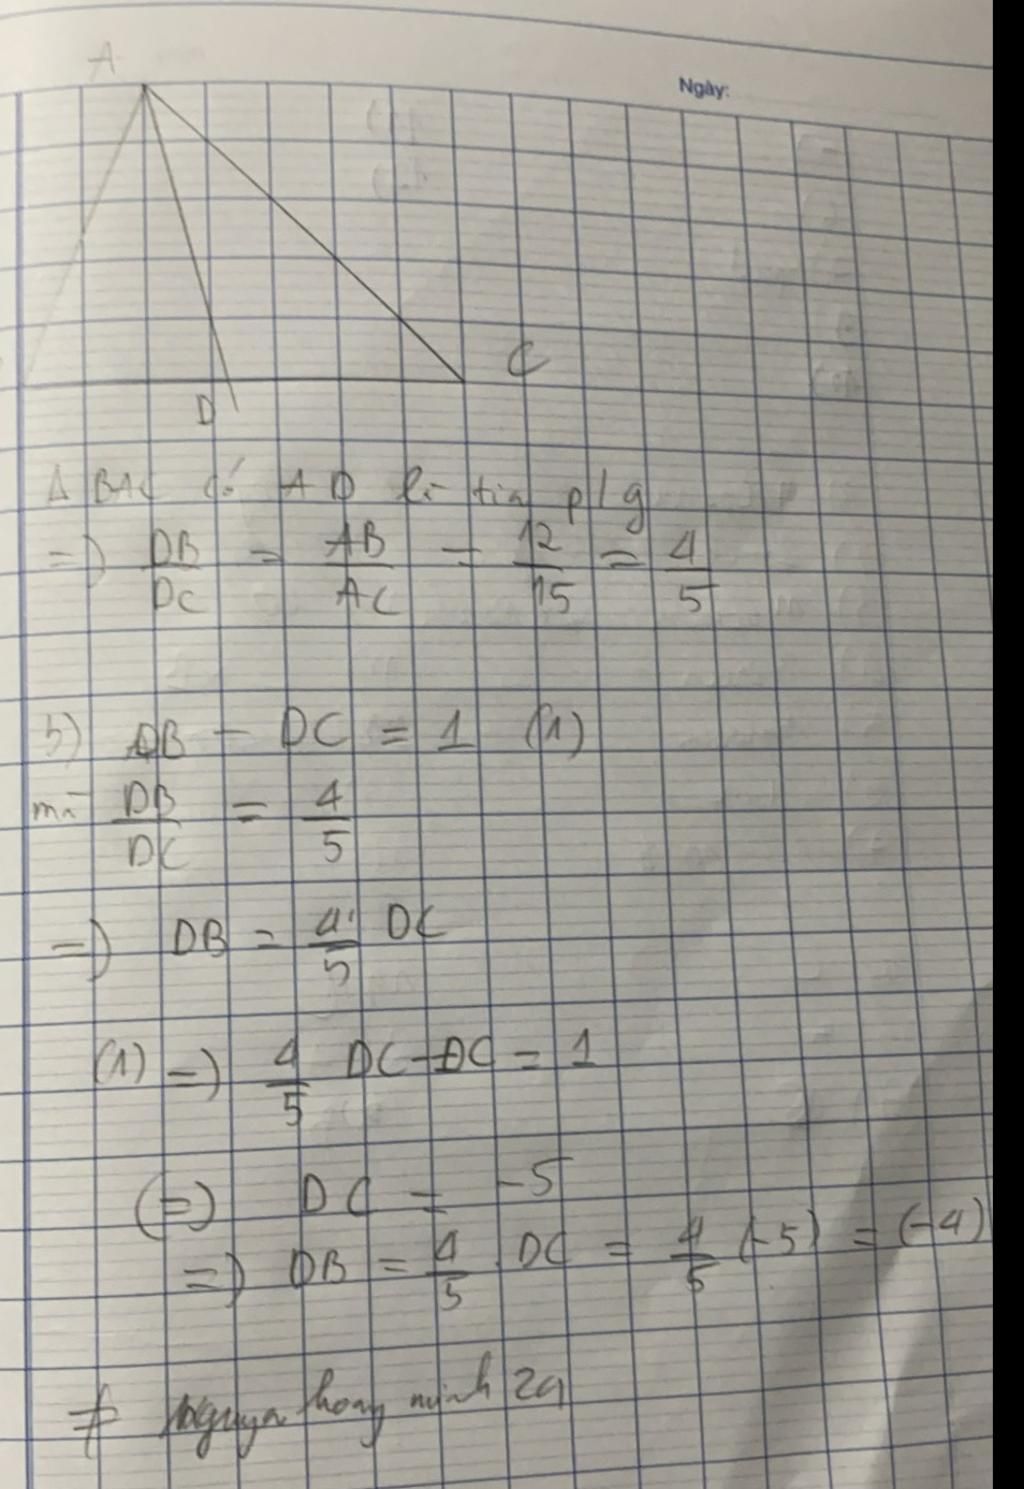 A
Ngày:
C
D
Δ BAC có AD là tia p/g
=) DB/DC = AB/AC = 12/15 = 4/5
b) DB - DC = 1 (1)
mà DB/DC = 4/5
=) DB = 4/5 DC
(1) =) 4/5 DC - DC = 1
(=) DC = -5
=) DB = 4/5 . DC = 4/5 (-5) = (-4)
minh